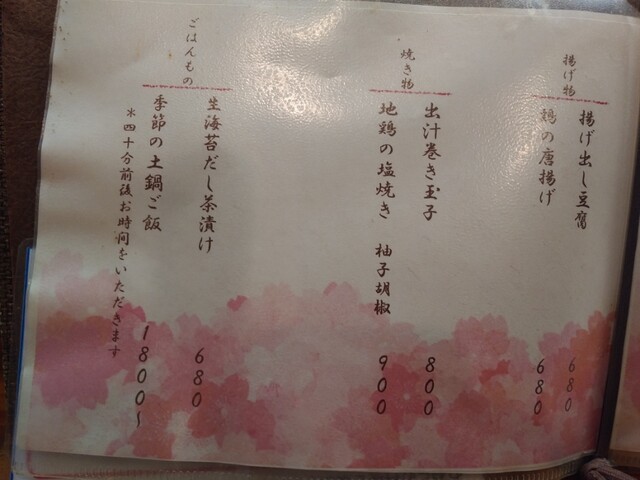 揚げ物
揚げ出し豆腐 680
鶏の唐揚げ 680
焼き物
出汁巻き玉子 800
地鶏の塩焼き 柚子胡椒 900
ごはんもの
生海苔だし茶漬け 680
季節の土鍋ご飯 1800~
＊四十分前後お時間をいただきます